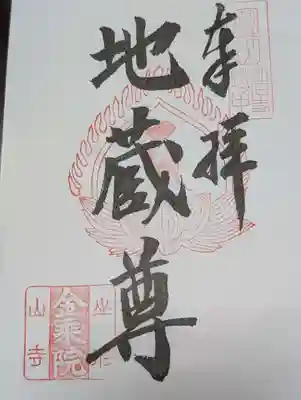 奉拝
地蔵尊
金乗院
山寺